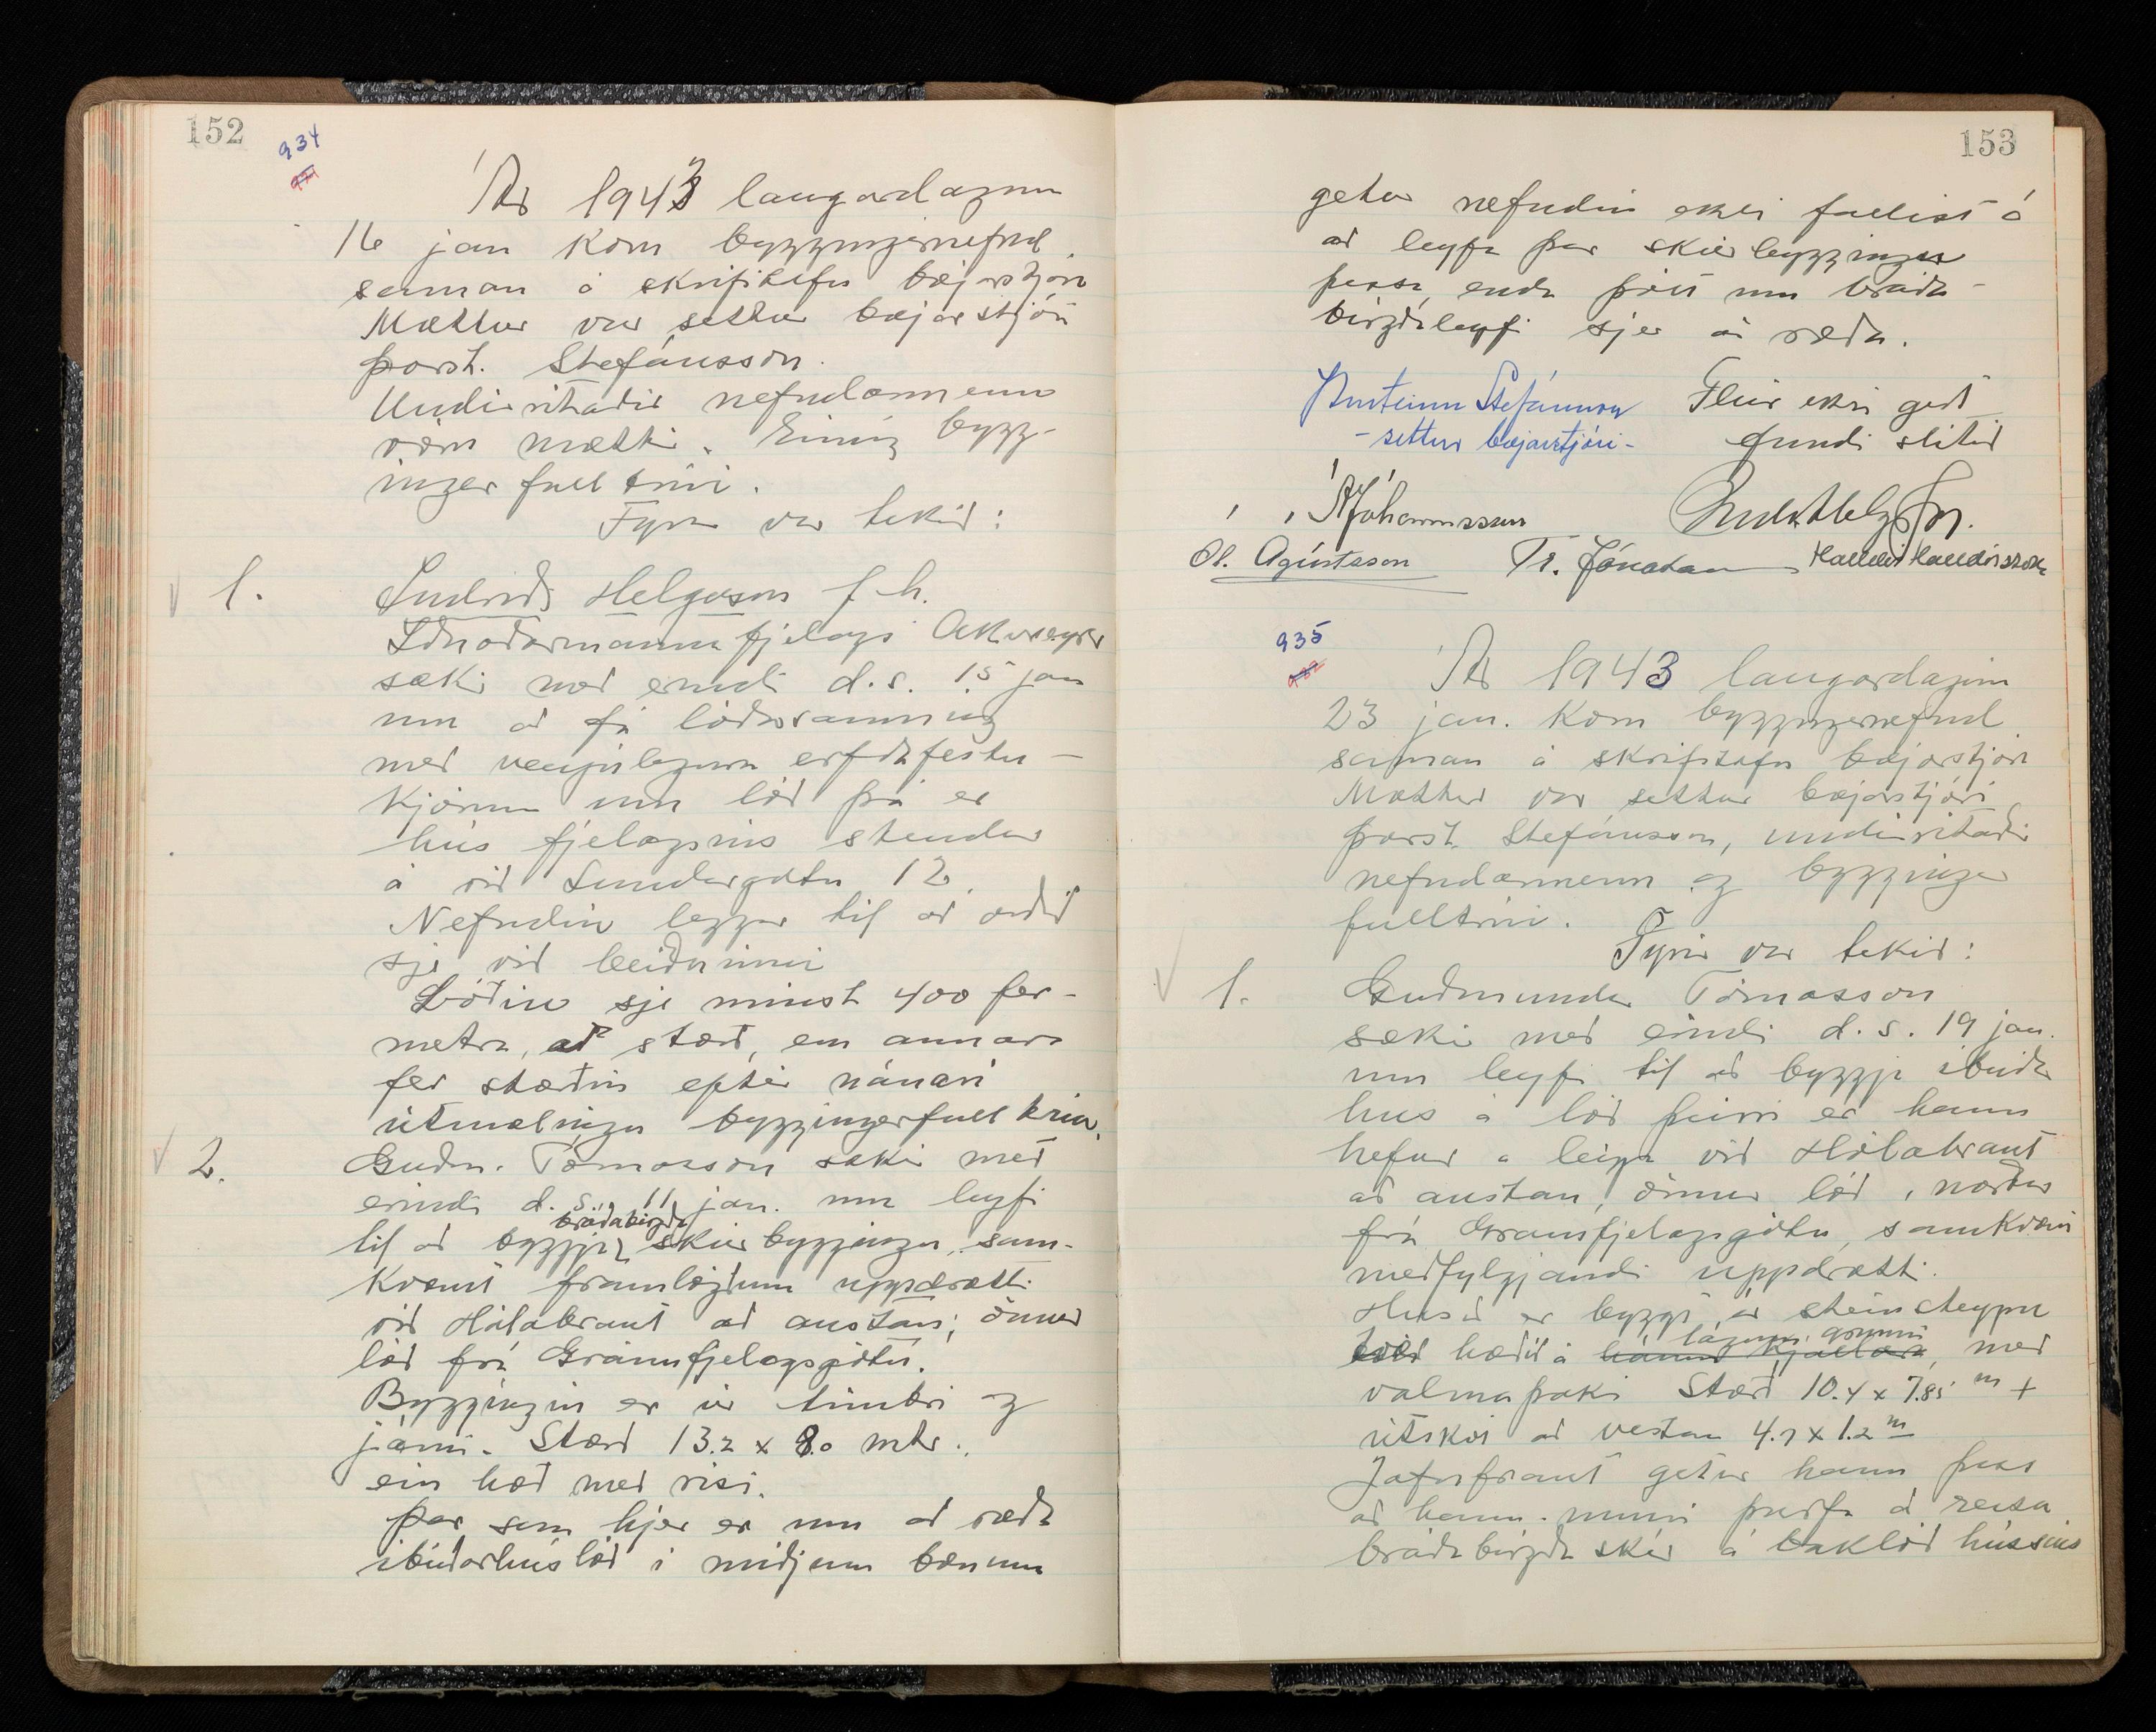 152
934
Ár 1943 laugardaginn
16 jan kom byggingarnefnd
saman á skrifstofu bæjarstjóra
Mættur var settur bæjarstjóri
Þorst. Stefánsson.
Undirritaðir nefndarmenn
voru mættir. Einnig bygg-
ingarfulltrúi.
Fyrir var tekið:
1. Indriði Helgason f. h.
Iðnaðarmannafjelags Akureyrar
sækir með erindi d.s. 15 jan
um að fá lóðarsamning
með venjulegum erfðafestu-
kjörum um lóð þá er
hús fjelagsins stendur
á við Lundargötu 12.
Nefndin leggur til að orðið
sje við beiðninni
Lóðin sje minst 400 fer-
metra, að stærð, en annars
fer stærðin eptir nánari
útmælingu byggingarfulltrúa.
2. Guðm. Tómasson sækir með
erindi d.s. 11 jan. um leyfi
til að byggja bráðabirgða skúrbyggingu, sam-
kvæmt framlögðum uppdrætti
við Hólabraut að austan; önnur
lóð frá Gránufjelagsgötu.
Byggingin er úr timbri og
járni. Stærð 13.2 x 8.0 mtr.
ein hæð með risi.
Þar sem hjer er um að ræða
íbúðarhúslóð í miðjum bænum
153
getur nefndin ekki fallist á
að leyfa þar skúrbyggingu
þessa, enda þótt um bráða-
birgðaleyfi sje að ræða.
Þorsteinn Stefánsson Fleira ekki gert
- settur bæjarstjóri - fundi slitið
Á Jóhannsson Indr. Helgason.
Ól. Ágústsson Tr. Jónatansson Halldór Halldórsson
935
Ár 1943 laugardaginn
23 jan. kom byggingarnefnd
saman á skrifstofu bæjarstjóra
Mættur var settur bæjarstjóri
Þorst. Stefánsson, undirritaðir
nefndarmenn og bygginga
fulltrúi.
Fyrir var tekið:
1. Guðmundur Tómasson
sækir með erindi d.s. 19 jan.
um leyfi til að byggja íbúðar
hús á lóð þeirri er hann
hefur á leigu við Hólabraut
að austan, önnur lóð, norður
frá Gránufjelagsgötu, samkvæmt
meðfylgjandi uppdrætti.
Húsið er byggt úr steinsteypu
hæðir á háum kjallara lágum grunni, með
valmaþaki Stærð 10.4 x 7.85 m +
útskot að vestan 4.7 x 1.2 m
Jafnframt getur hann þess
að hann muni þurfa að reisa
bráðabirgða skúr á baklóð hússins